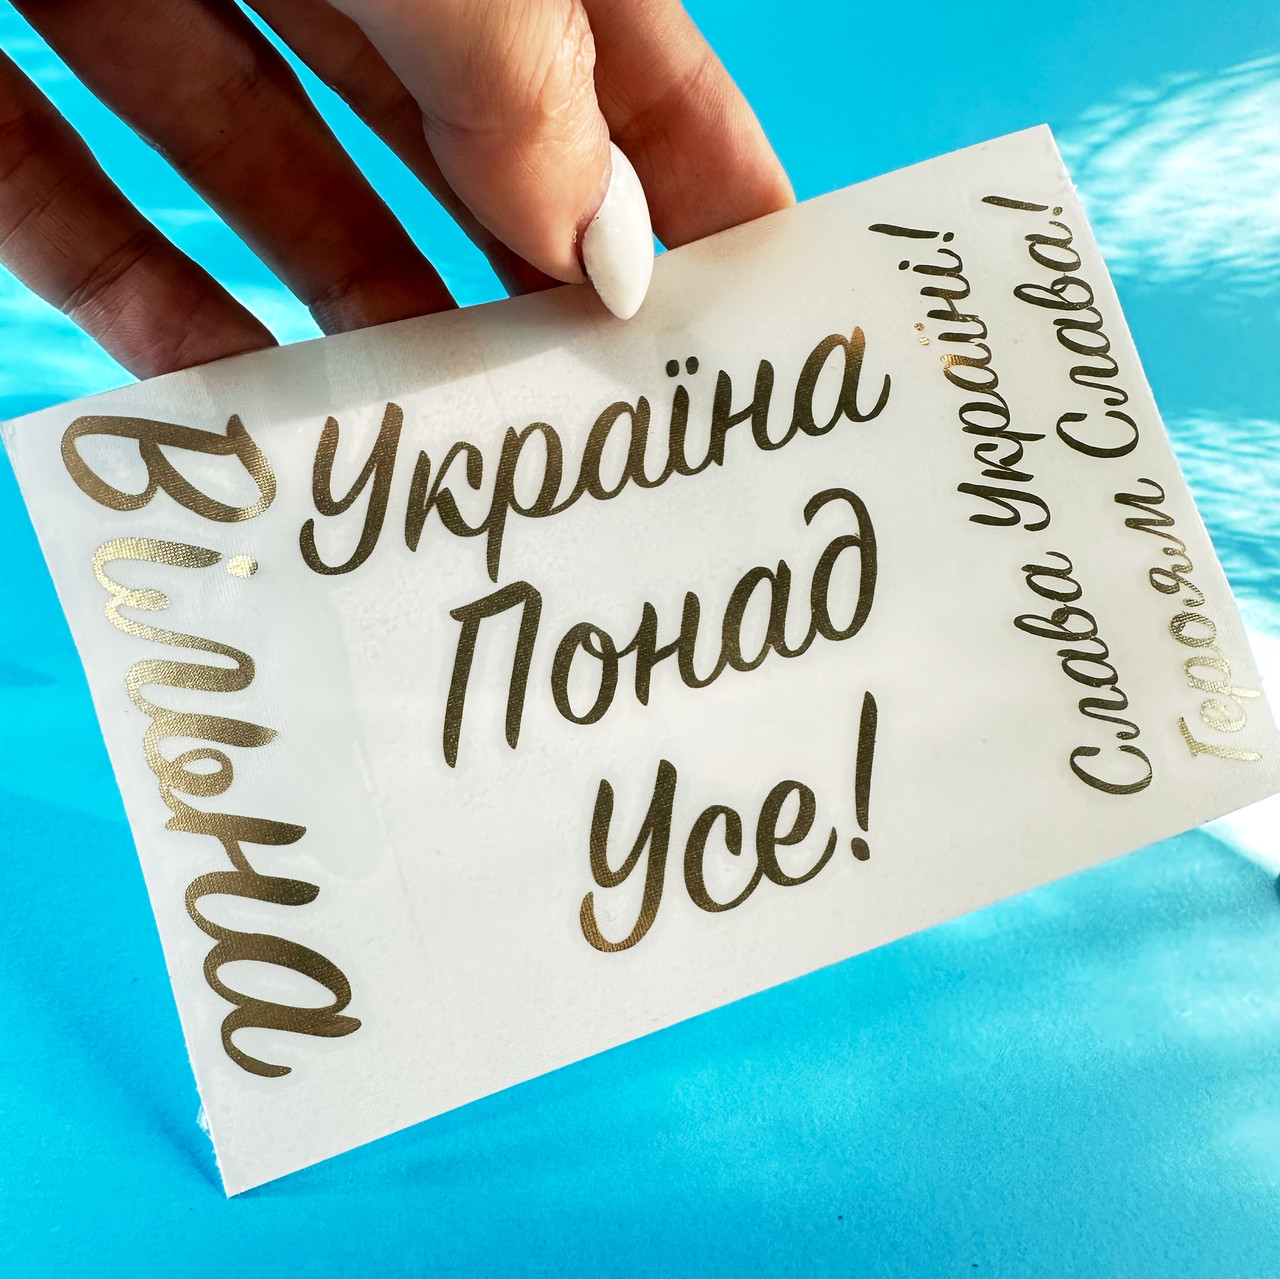 Вільна
Україна
Понад
Усе!
Слава Україні!
Героям Слава!